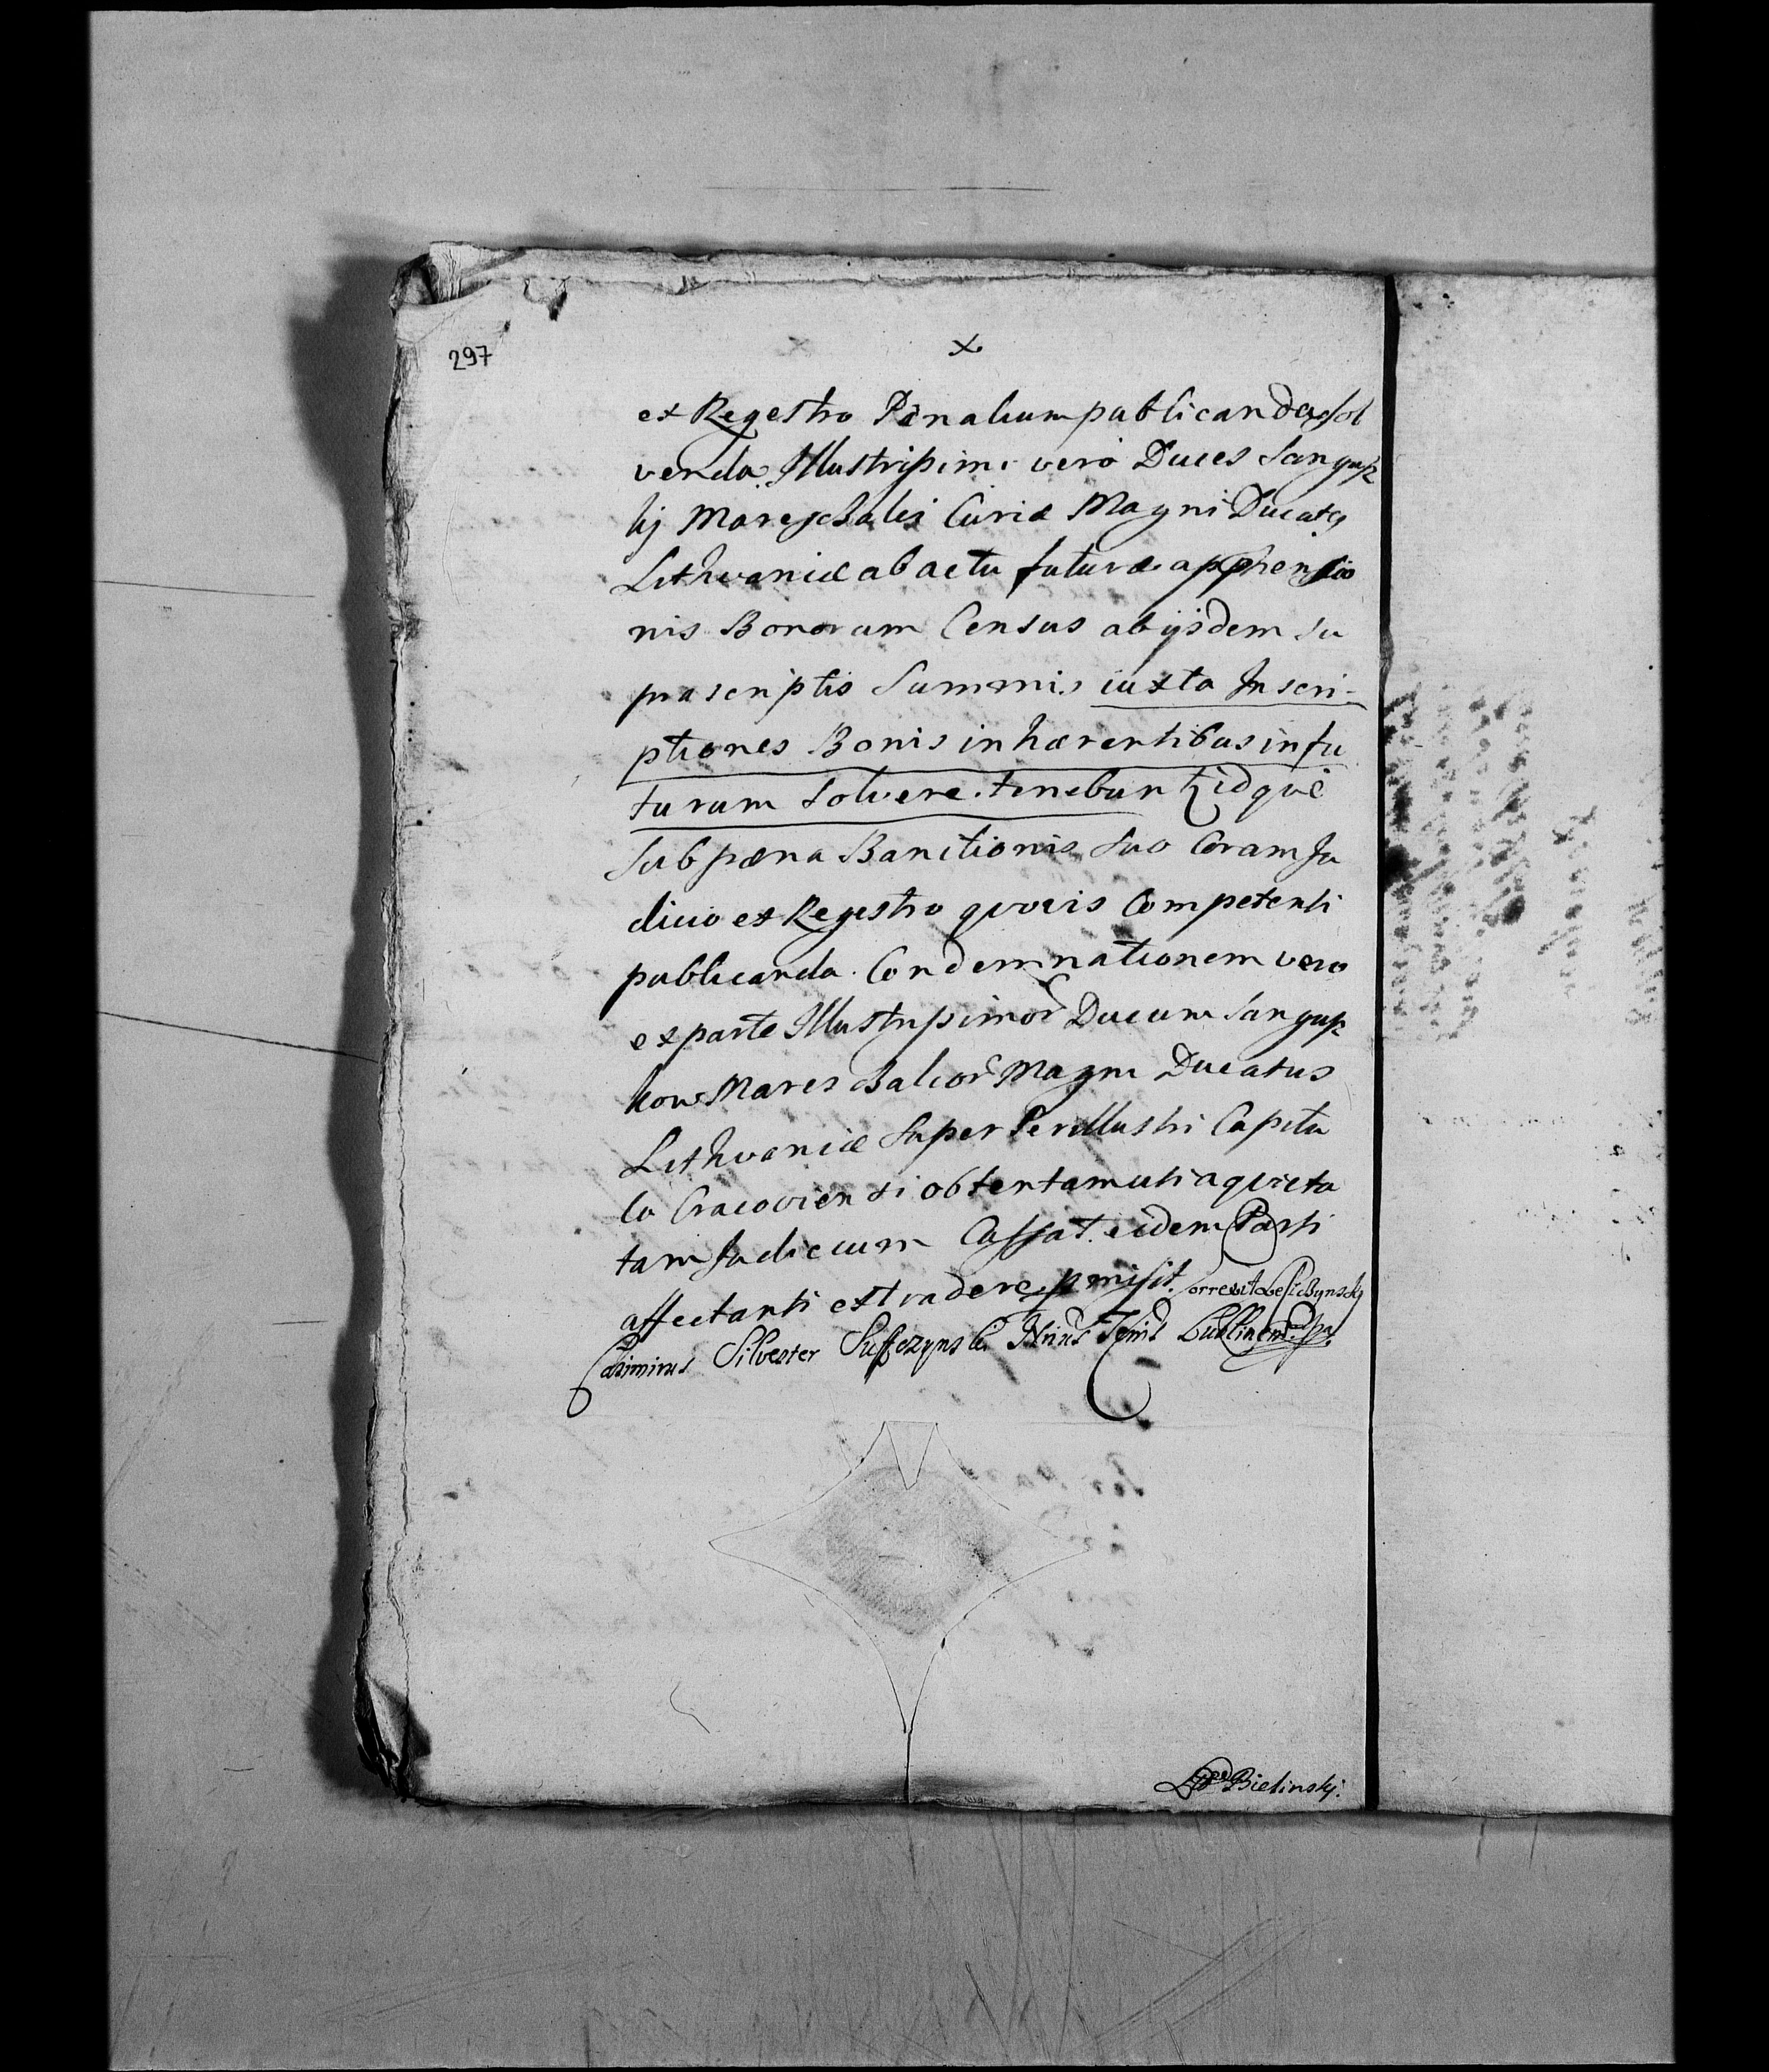 297
x
ex Regestro Pænalium publicanda sol
venda. Illustrissimi vero Duces Sangusz
kij Mareschalei Curiæ Magni Ducatus
Lithvaniæ ab actu futuræ apprehensio
nis Bonorum Census ab ijsdem su
prascriptis Summis iuxta Inscri-
ptiones Bonis inhærentibus in fu
turum solvere tenebuntur idque
sub pæna Banitionis suo Coram Ju
dicio ex Regestro quovis Competenti
publicanda. Condemnationem vero
ex parte Illustrissimor Ducum Sangusz
kow Mareschalcor Magni Ducatus
Lithvaniæ super Perillustri Capitu
lo Cracoviensi obtentam uti aquieta
tam Judicium Cassat. eidem Parti
affectanti extradere pmisit.
Casimirus Silvester Suffczynski Nrius Tnis Lublinens
Bielinskj.